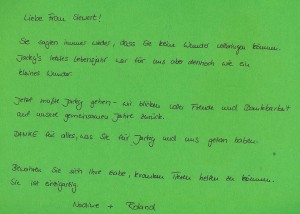 Liebe Frau Siewert!
Sie sagten immer wieder, dass Sie keine Wunder vollbringen können.
Jacky's letztes Lebensjahr war für uns aber dennoch wie ein
kleines Wunder.
Jetzt mußte Jacky gehen - wir blicken voller Freude und Dankbarkeit
auf unsere gemeinsamen Jahre zurück.
DANKE für alles, was Sie für Jacky und uns getan haben.
Bewahren Sie sich Ihre Gabe, kranken Tieren helfen zu können.
Sie ist einzigartig.
Nadine + Roland